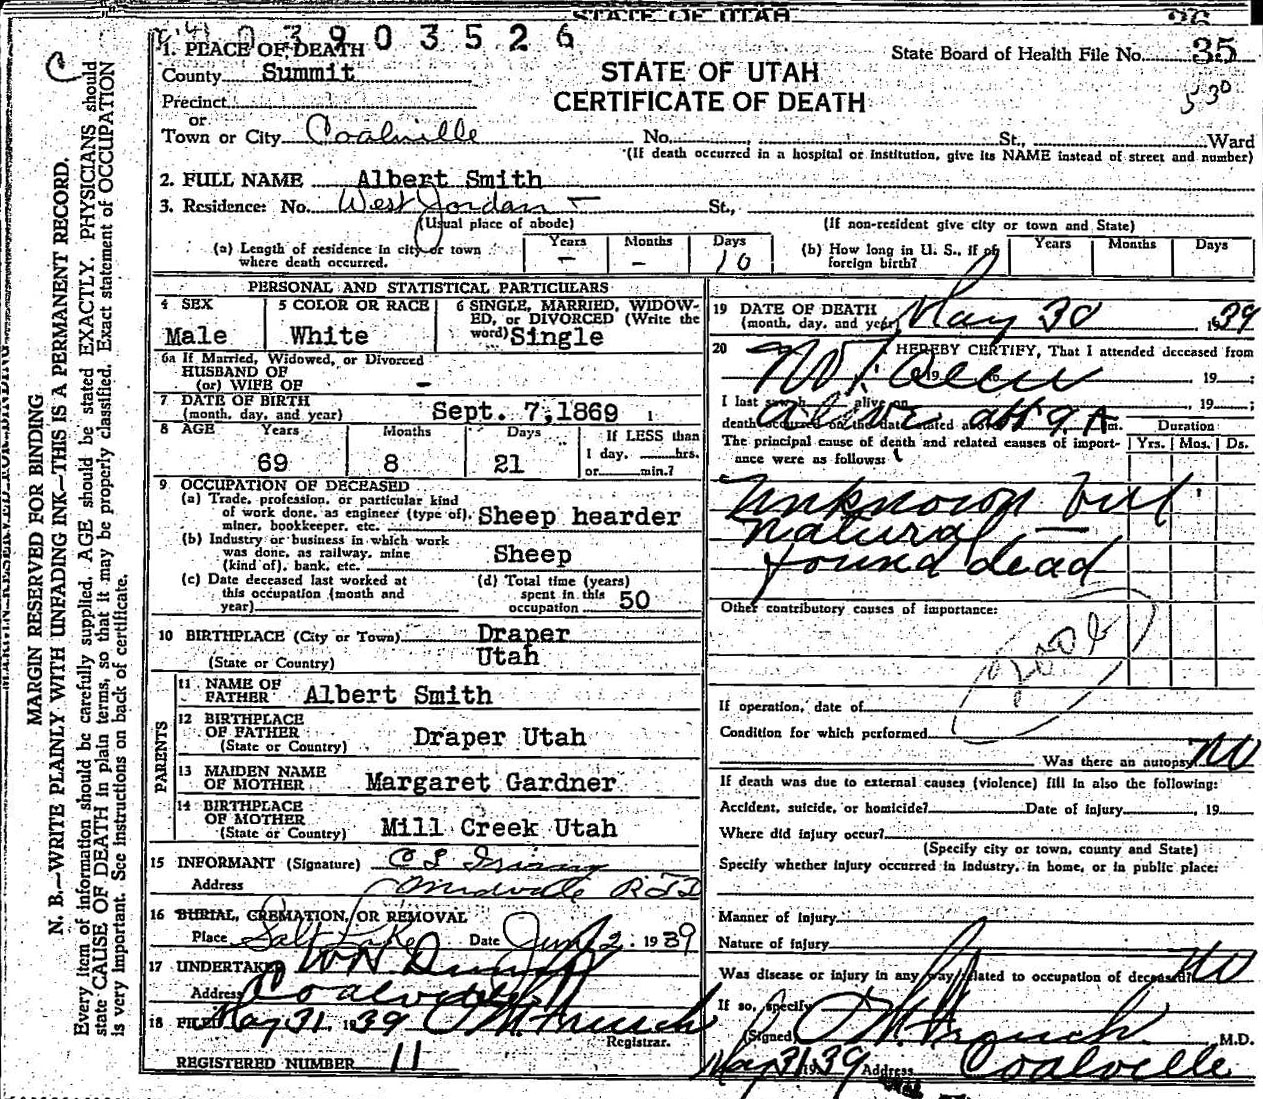 STATE OF UTAH
26
0 3 9 0 3 5 2 6
State Board of Health File No. 35
530
STATE OF UTAH
CERTIFICATE OF DEATH
1. PLACE OF DEATH
County Summit
Precinct
or
Town or City Coalville No. St., Ward
(If death occurred in a hospital or institution, give its NAME instead of street and number)
2. FULL NAME Albert Smith
3. Residence: No. West Jordan - St.,
(Usual place of abode) (If non-resident give city or town and State)
(a) Length of residence in city or town where death occurred. Years - Months - Days 10
(b) How long in U. S., if of foreign birth? Years Months Days
PERSONAL AND STATISTICAL PARTICULARS
4 SEX Male
5 COLOR OR RACE White
6 SINGLE, MARRIED, WIDOWED, or DIVORCED (Write the word) Single
6a If Married, Widowed, or Divorced
HUSBAND OF
(or) WIFE OF -
7 DATE OF BIRTH
(month, day, and year) Sept. 7,1869
8 AGE Years 69 Months 8 Days 21 If LESS than
1 day, hrs.
or min.?
9 OCCUPATION OF DECEASED
(a) Trade, profession, or particular kind
of work done, as engineer (type of), Sheep hearder
miner, bookkeeper, etc.
(b) Industry or business in which work
was done, as railway, mine Sheep
(kind of), bank, etc.
(c) Date deceased last worked at
this occupation (month and
year)
(d) Total time (years)
spent in this
occupation 50
10 BIRTHPLACE (City or Town) Draper
(State or Country) Utah
PARENTS
11 NAME OF
FATHER Albert Smith
12 BIRTHPLACE
OF FATHER
(State or Country) Draper Utah
13 MAIDEN NAME
OF MOTHER Margaret Gardner
14 BIRTHPLACE
OF MOTHER
(State or Country) Mill Creek Utah
15 INFORMANT (Signature)
Address Midvale RFD
16 BURIAL, CREMATION, OR REMOVAL
Place Salt Lake Date June 2. 1939
17 UNDERTAKER
Address Coalville
18 FILED May 31. 1939
Registrar.
REGISTERED NUMBER 11
19 DATE OF DEATH
(month, day, and year) May 30 1939
20 I HEREBY CERTIFY, That I attended deceased from
Not Seen 19 ;
I last saw h alive on , 19 ;
alive at 9 A m.
death occurred on the date stated above
The principal cause of death and related causes of importance were as follows:
Duration
Yrs. Mos. Ds.
Unknown but
natural —
found dead
Other contributory causes of importance:
200b
If operation, date of
Condition for which performed
Was there an autopsy No
If death was due to external causes (violence) fill in also the following:
Accident, suicide, or homicide? Date of injury , 19
Where did injury occur?
(Specify city or town, county and State)
Specify whether injury occurred in industry, in home, or in public place:
Manner of injury
Nature of injury
Was disease or injury in any way related to occupation of deceased? No
If so, specify
(Signed) M.D.
May 31 1939 Address Coalville
MARGIN RESERVED FOR BINDING
N. B.—WRITE PLAINLY WITH UNFADING INK—THIS IS A PERMANENT RECORD.
Every item of information should be carefully supplied. AGE should be stated EXACTLY. PHYSICIANS should
state CAUSE OF DEATH in plain terms, so that it may be properly classified. Exact statement of OCCUPATION
is very important. See instructions on back of certificate.